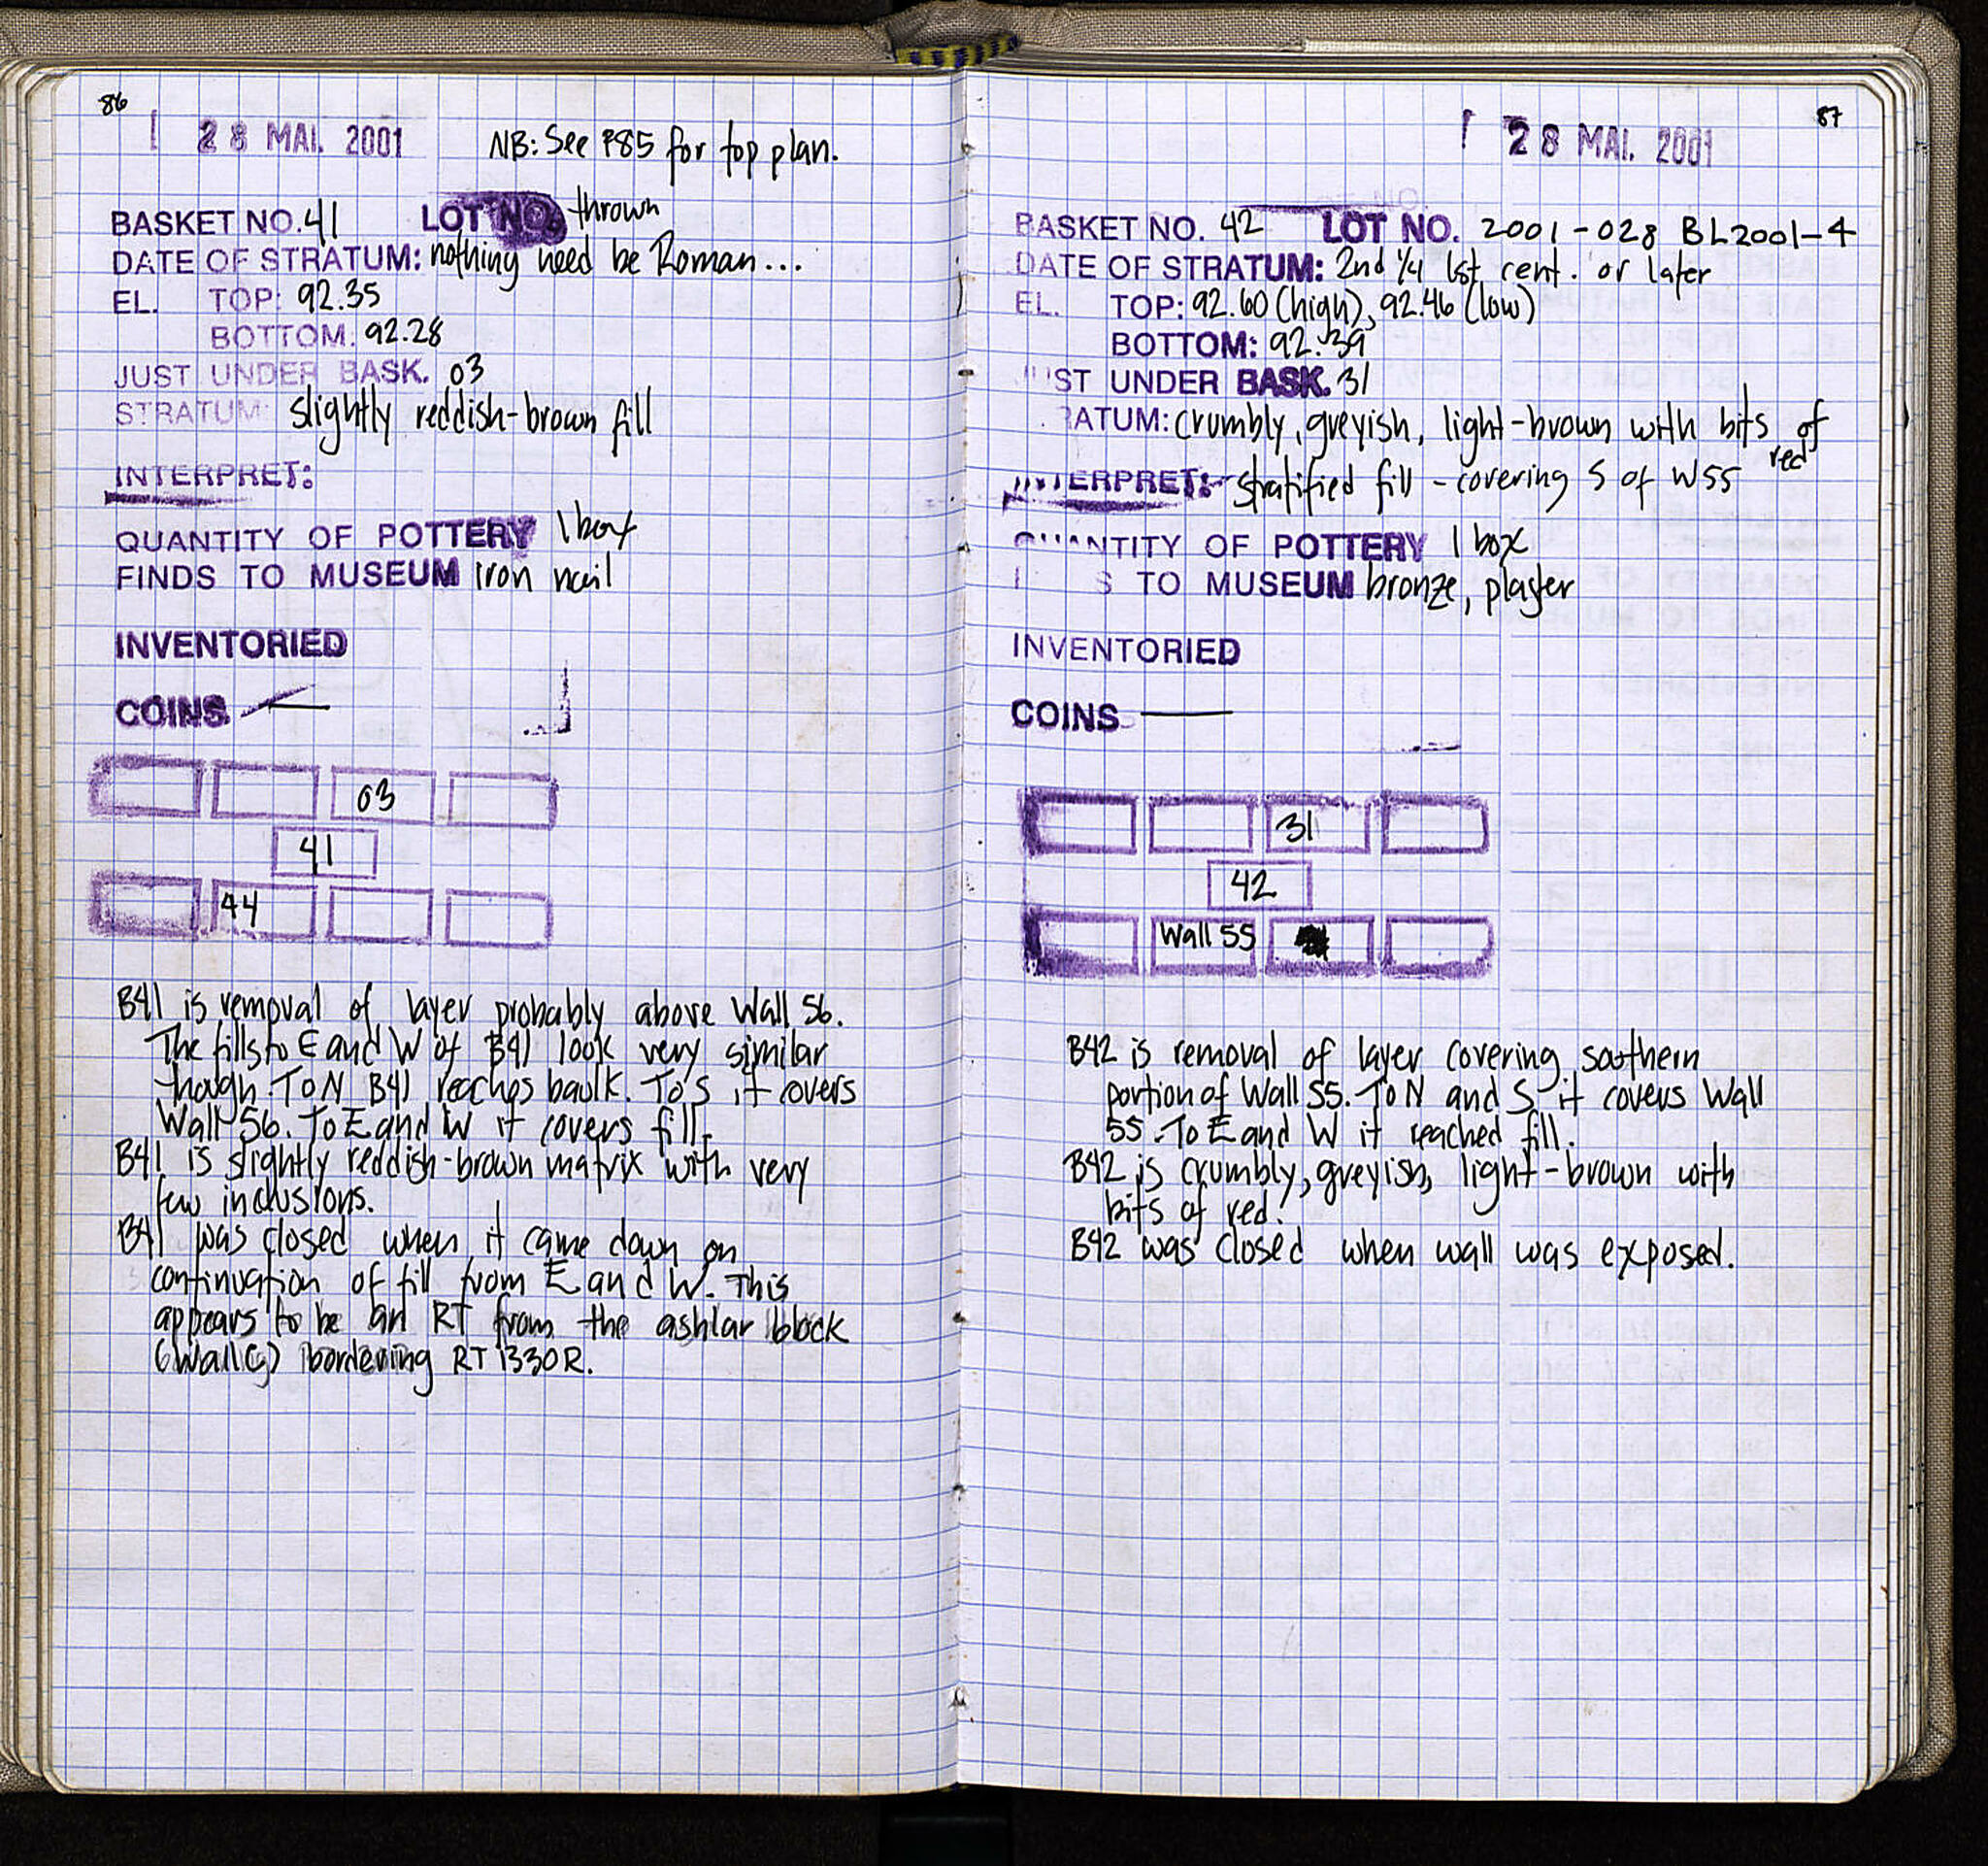 86
28 MAI. 2001 NB: See P85 for top plan.
BASKET NO. 41 LOT NO. thrown
DATE OF STRATUM: nothing need be Roman...
EL. TOP: 92.35
BOTTOM: 92.28
JUST UNDER BASK. 03
STRATUM: slightly reddish-brown fill
INTERPRET:
QUANTITY OF POTTERY 1 box
FINDS TO MUSEUM iron nail
INVENTORIED
COINS —
03
41
44
B41 is removal of layer probably above Wall 56.
The fills to E and W of B41 look very similar
though. To N B41 reaches baulk. To S it covers
Wall 56. To E and W it covers fill.
B41 is slightly reddish-brown matrix with very
few inclusions.
B41 was closed when it came down on
continuation of fill from E and W. This
appears to be an RT from the ashlar block
(Wall G) bordering RT 1330R.
87
28 MAI. 2001
BASKET NO. 42 LOT NO. 2001-028 BL2001-4
DATE OF STRATUM: 2nd 1/4 1st cent. or later
EL. TOP: 92.60 (high), 92.46 (low)
BOTTOM: 92.39
UST UNDER BASK. 31
RATUM: crumbly, greyish, light-brown with bits of
red
INTERPRET: stratified fill - covering S of W55
QUANTITY OF POTTERY 1 box
S TO MUSEUM bronze, plaster
INVENTORIED
COINS —
31
42
Wall 55
B42 is removal of layer covering southern
portion of Wall 55. To N and S it covers Wall
55. To E and W it reached fill.
B42 is crumbly, greyish, light-brown with
bits of red.
B42 was closed when wall was exposed.